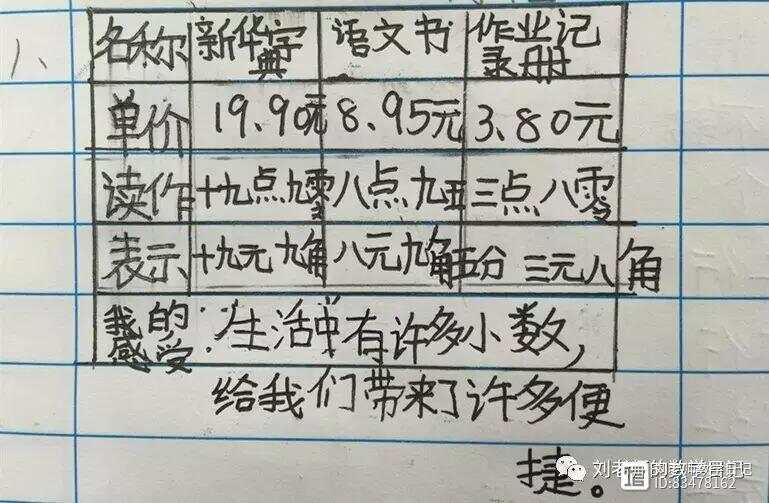 1、
名称 新华字典 语文书 作业记录册
单价 19.90元 8.95元 3.80元
读作 十九点九零 八点九五 三点八零
表示 十九元九角 八元九角五分 三元八角
我的感受:生活中有许多小数,
给我们带来了许多便
捷。
ID:83478162